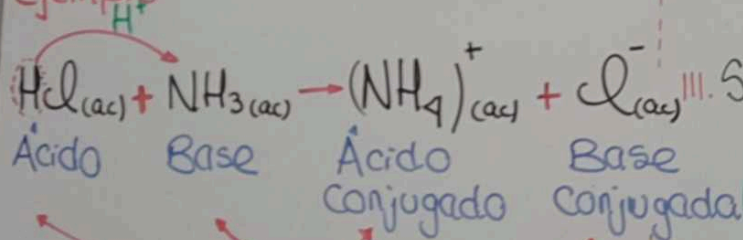 ejemplo
H⁺
HCl(ac) + NH₃(ac) → (NH₄)⁺(ac) + Cl⁻(ac) III. S
Ácido Base Ácido conjugado Base conjugada